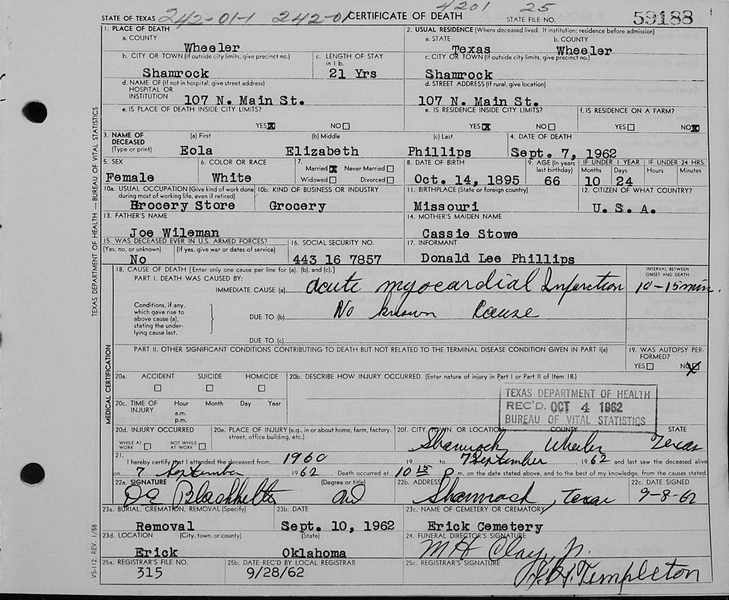 4201 25
STATE OF TEXAS 242-01-1 242-01 CERTIFICATE OF DEATH STATE FILE NO. 59188
1. PLACE OF DEATH
2. USUAL RESIDENCE (Where deceased lived. If institution: residence before admission)
a. COUNTY Wheeler
a. STATE Texas b. COUNTY Wheeler
b. CITY OR TOWN (If outside city limits, give precinct no.) Shamrock
c. LENGTH OF STAY in 1 b. 21 Yrs
c. CITY OR TOWN (If outside city limits, give precinct no.) Shamrock
d. NAME OF (If not in hospital, give street address) HOSPITAL OR INSTITUTION 107 N. Main St.
d. STREET ADDRESS (If rural, give location) 107 N. Main St.
e. IS PLACE OF DEATH INSIDE CITY LIMITS? YES X NO
e. IS RESIDENCE INSIDE CITY LIMITS? YES X NO
f. IS RESIDENCE ON A FARM? YES NO X
3. NAME OF DECEASED (Type or print)
(a) First Eola (b) Middle Elizabeth (c) Last Phillips
4. DATE OF DEATH Sept. 7, 1962
5. SEX Female
6. COLOR OR RACE White
7. Married X Never Married Widowed Divorced
8. DATE OF BIRTH Oct. 14, 1895
9. AGE (In years last birthday) 66
IF UNDER 1 YEAR Months 10 Days 24
IF UNDER 24 HRS. Hours Minutes
10a. USUAL OCCUPATION (Give kind of work done during most of working life, even if retired) Hrocery Store
10b. KIND OF BUSINESS OR INDUSTRY Grocery
11. BIRTHPLACE (State or foreign country) Missouri
12. CITIZEN OF WHAT COUNTRY? U. S. A.
13. FATHER'S NAME Joe Wileman
14. MOTHER'S MAIDEN NAME Cassie Stowe
15. WAS DECEASED EVER IN U.S. ARMED FORCES? (Yes, no, or unknown) (If yes, give war or dates of service) No
16. SOCIAL SECURITY NO. 443 16 7857
17. INFORMANT Donald Lee Phillips
18. CAUSE OF DEATH [Enter only one cause per line for (a), (b), and (c).]
INTERVAL BETWEEN ONSET AND DEATH
PART I. DEATH WAS CAUSED BY:
IMMEDIATE CAUSE (a) acute myocardial Infarction 10-15 min.
Conditions, if any, which gave rise to above cause (a), stating the underlying cause last.
DUE TO (b) No known Cause
DUE TO (c)
PART II. OTHER SIGNIFICANT CONDITIONS CONTRIBUTING TO DEATH BUT NOT RELATED TO THE TERMINAL DISEASE CONDITION GIVEN IN PART I(a)
19. WAS AUTOPSY PERFORMED? YES NO X
20a. ACCIDENT SUICIDE HOMICIDE
20b. DESCRIBE HOW INJURY OCCURRED. (Enter nature of injury in Part I or Part II of Item 18.)
20c. TIME OF INJURY Hour a.m. p.m. Month Day Year
TEXAS DEPARTMENT OF HEALTH
REC'D. OCT 4 1962
BUREAU OF VITAL STATISTICS
20d. INJURY OCCURRED WHILE AT WORK NOT WHILE AT WORK
20e. PLACE OF INJURY (e.g., in or about home, farm, factory, street, office building, etc.)
20f. CITY, TOWN, OR LOCATION COUNTY STATE
Shamrock Wheeler Texas
21. I hereby certify that I attended the deceased from 1960 19 to 7 September 1962 and last saw the deceased alive
on 7 September 1962 Death occurred at 10 15 p m. on the date stated above, and to the best of my knowledge, from the causes stated
22a. SIGNATURE (Degree or title)
22b. ADDRESS Shamrock, Texas
22c. DATE SIGNED 9-8-62
23a. BURIAL, CREMATION, REMOVAL (Specify) Removal
23b. DATE Sept. 10, 1962
23c. NAME OF CEMETERY OR CREMATORY Erick Cemetery
23d. LOCATION (City, town, or county) (State) Erick Oklahoma
24. FUNERAL DIRECTOR'S SIGNATURE M H Clay, Jr.
25a. REGISTRAR'S FILE NO. 315
25b. DATE REC'D BY LOCAL REGISTRAR 9/28/62
25c. REGISTRAR'S SIGNATURE Templeton
TEXAS DEPARTMENT OF HEALTH — BUREAU OF VITAL STATISTICS
MEDICAL CERTIFICATION
VS-112 REV. 1/58